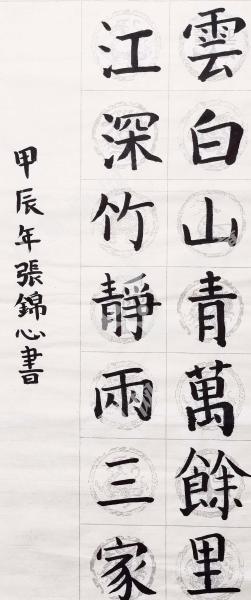 雲白山青萬餘里
江深竹靜兩三家
甲辰年張錦心書